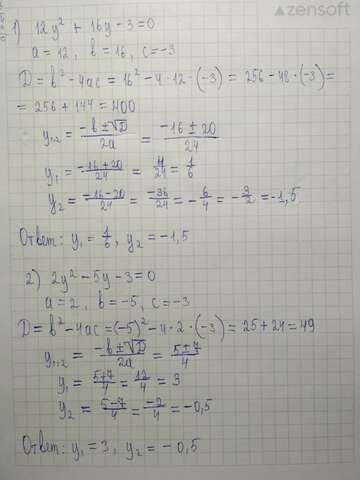 zensoft
1) 12y² + 16y - 3 = 0
a = 12, b = 16, c = -3
D = b² - 4ac = 16² - 4 · 12 · (-3) = 256 - 48 · (-3) =
= 256 + 144 = 400
y₁,₂ = (-b ± √D)/2a = (-16 ± 20)/24
y₁ = (-16 + 20)/24 = 4/24 = 1/6
y₂ = (-16 - 20)/24 = -36/24 = -6/4 = -3/2 = -1,5
Ответ: y₁ = 1/6, y₂ = -1,5
2) 2y² - 5y - 3 = 0
a = 2, b = -5, c = -3
D = b² - 4ac = (-5)² - 4 · 2 · (-3) = 25 + 24 = 49
y₁,₂ = (-b ± √D)/2a = (5 ± 7)/4
y₁ = (5 + 7)/4 = 12/4 = 3
y₂ = (5 - 7)/4 = -2/4 = -0,5
Ответ: y₁ = 3, y₂ = -0,5